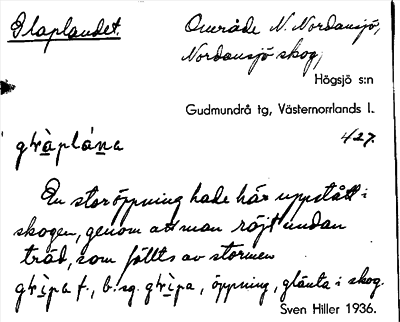 Glaplandet.
Område N. Nordansjö,
Nordansjö skog,
Högsjö s:n
Gudmundrå tg, Västernorrlands l.
427.
En stor öppning hade här uppstått i
skogen, genom att man röjt undan
träd, som fällts av stormen
f., b. sg. , öppning, glänta i skog.
Sven Hiller 1936.